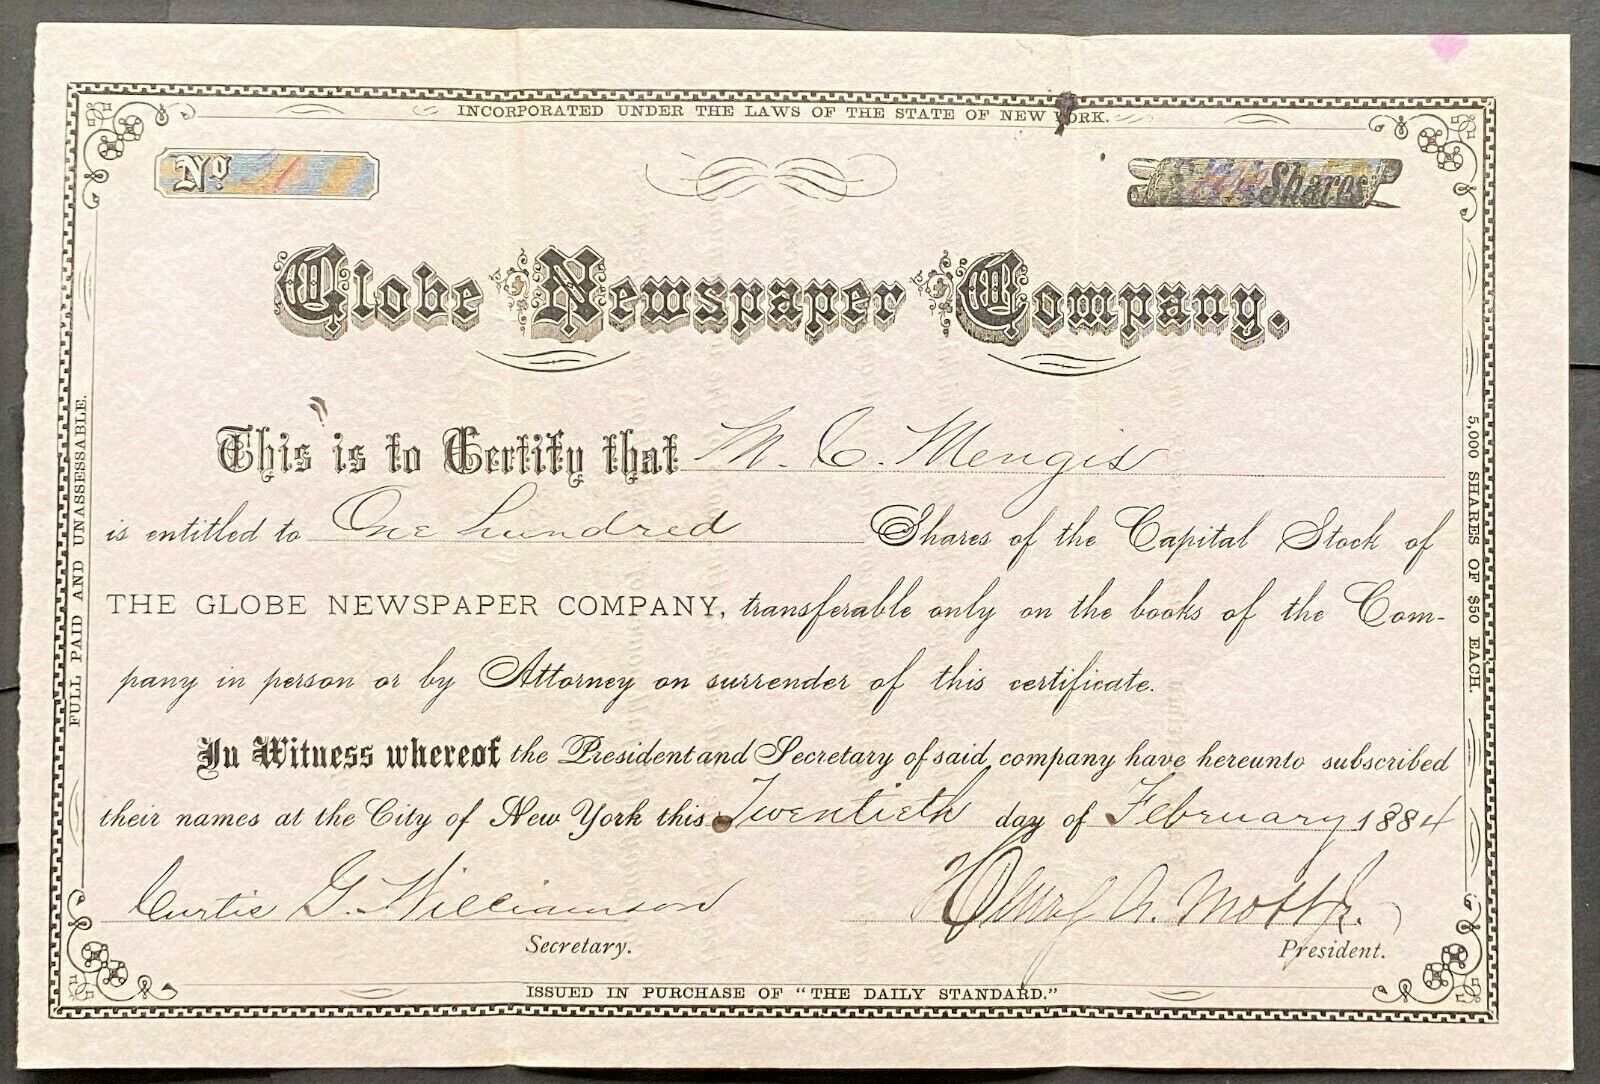 INCORPORATED UNDER THE LAWS OF THE STATE OF NEW YORK.
No.
Shares
Globe Newspaper Company.
This is to Certify that M. C. Mengis
is entitled to One hundred Shares of the Capital Stock of
THE GLOBE NEWSPAPER COMPANY, transferable only on the books of the Com-
pany in person or by Attorney on surrender of this certificate.
In Witness whereof the President and Secretary of said company have hereunto subscribed
their names at the City of New York this Twentieth day of February 1884
Curtis G. Williamson
Henry A. Mott Jr.
Secretary.
President.
ISSUED IN PURCHASE OF "THE DAILY STANDARD."
FULL PAID AND UNASSESSABLE.
5,000 SHARES OF $50 EACH.